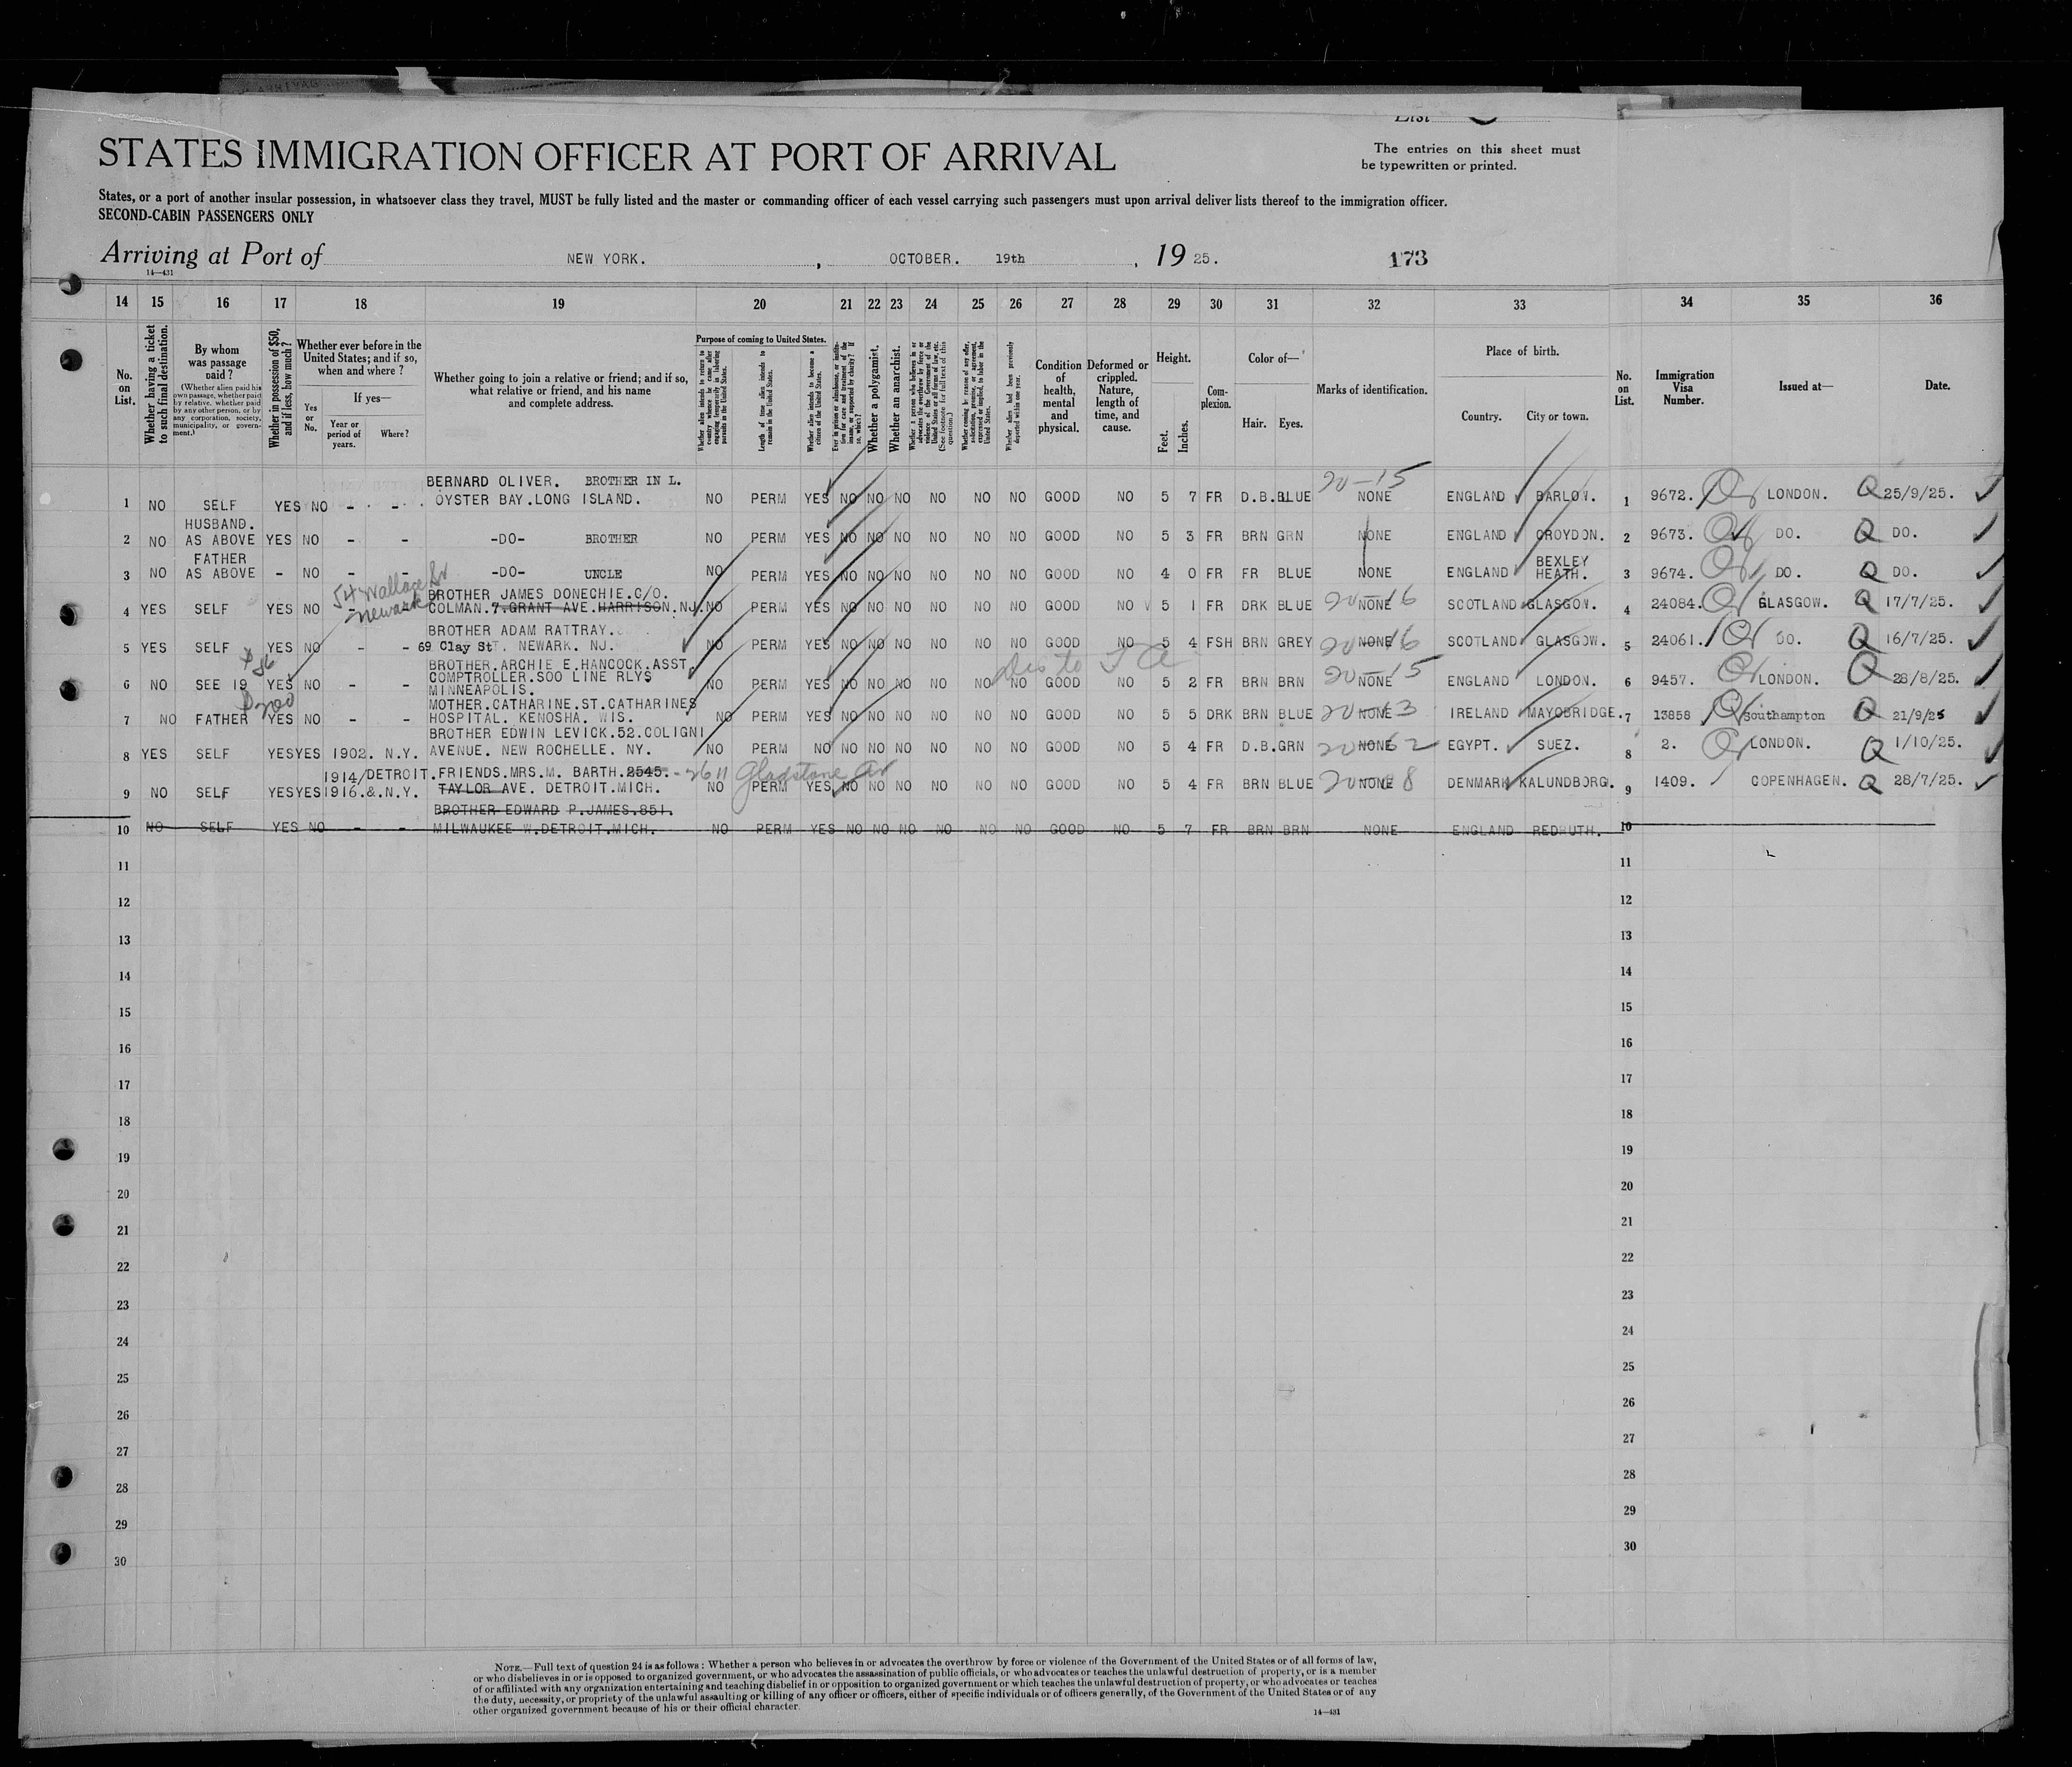 List
STATES IMMIGRATION OFFICER AT PORT OF ARRIVAL
The entries on this sheet must
be typewritten or printed.
States, or a port of another insular possession, in whatsoever class they travel, MUST be fully listed and the master or commanding officer of each vessel carrying such passengers must upon arrival deliver lists thereof to the immigration officer.
SECOND-CABIN PASSENGERS ONLY
Arriving at Port of NEW YORK. , OCTOBER. 19th , 19 25. 173
14—431
14 15 16 17 18 19 20 21 22 23 24 25 26 27 28 29 30 31 32 33 34 35 36
No. on List.
Whether having a ticket to such final destination.
By whom was passage paid?
(Whether alien paid his own passage, whether paid by relative, whether paid by any other person, or by any corporation, society, municipality, or government.)
Whether in possession of $50, and if less, how much?
Whether ever before in the United States; and if so, when and where?
Yes or No.
If yes—
Year or period of years.
Where?
Whether going to join a relative or friend; and if so, what relative or friend, and his name and complete address.
Purpose of coming to United States.
Whether alien intends to return to country whence he came after engaging temporarily in laboring pursuits in the United States.
Length of time alien intends to remain in the United States.
Whether alien intends to become a citizen of the United States.
Ever in prison or almshouse, or institution for care and treatment of the insane, or supported by charity? If so, which?
Whether a polygamist.
Whether an anarchist.
Whether coming by reason of any offer, solicitation, promise, or agreement, expressed or implied, to labor in the United States.
Whether alien had been previously deported within one year.
Condition of health, mental and physical.
Deformed or crippled. Nature, length of time, and cause.
Height.
Feet.
Inches.
Complexion.
Color of—
Hair. Eyes.
Marks of identification.
Place of birth.
Country. City or town.
No. on List.
Immigration Visa Number.
Issued at—
Date.
BERNARD OLIVER. BROTHER IN L. 20-15
1 NO SELF YES NO - - OYSTER BAY.LONG ISLAND. NO PERM YES NO NO NO NO NO NO GOOD NO 5 7 FR D.B.BLUE NONE ENGLAND BARLOW. 1 9672. LONDON. Q 25/9/25.
HUSBAND.
2 NO AS ABOVE YES NO - - -DO- BROTHER NO PERM YES NO NO NO NO NO NO GOOD NO 5 3 FR BRN GRN NONE ENGLAND CROYDON. 2 9673. DO. Q DO.
FATHER BEXLEY
3 NO AS ABOVE - NO -DO- UNCLE NO PERM YES NO NO NO NO NO NO GOOD NO 4 0 FR FR BLUE NONE ENGLAND HEATH. 3 9674. DO. Q DO.
54 Wallace
Newark
BROTHER JAMES DONECHIE.C/O.
4 YES SELF YES NO COLMAN.7.GRANT AVE.HARRISON.NJ. NO PERM YES NO NO NO NO NO NO GOOD NO 5 1 FR DRK BLUE 20 NONE 16 SCOTLAND GLASGOW. 4 24084. GLASGOW. Q 17/7/25.
BROTHER ADAM RATTRAY.
5 YES SELF YES NO - - 69 Clay St. NEWARK. NJ. NO PERM YES NO NO NO NO NO NO GOOD NO 5 4 FSH BRN GREY 20 NONE 16 SCOTLAND GLASGOW. 5 24061. DO. Q 16/7/25.
$86
BROTHER.ARCHIE E.HANCOCK.ASST.
COMPTROLLER.SOO LINE RLYS
6 NO SEE 19 YES NO - - MINNEAPOLIS. NO PERM YES NO NO NO NO NO NO GOOD NO 5 2 FR BRN BRN 20-15 NONE ENGLAND LONDON. 6 9457. LONDON. Q 28/8/25.
$200
MOTHER.CATHARINE.ST.CATHARINES
7 NO FATHER YES NO - - HOSPITAL. KENOSHA. WIS. NO PERM YES NO NO NO NO NO NO GOOD NO 5 5 DRK BRN BLUE 20 NONE 3 IRELAND MAYOBRIDGE. 7 13858 Southampton Q 21/9/25
BROTHER EDWIN LEVICK.52.COLIGNI
8 YES SELF YES YES 1902. N.Y. AVENUE. NEW ROCHELLE. NY. NO PERM NO NO NO NO NO NO NO GOOD NO 5 4 FR D.B.GRN 20 NONE 62 EGYPT. SUEZ. 8 2. LONDON. Q 1/10/25.
1914/DETROIT. FRIENDS.MRS.M. BARTH.2545. -2611 Gladstone Av
9 NO SELF YES YES 1916.&.N.Y. TAYLOR AVE. DETROIT.MICH. NO PERM YES NO NO NO NO NO NO GOOD NO 5 4 FR BRN BLUE 20 NONE 8 DENMARK KALUNDBORG. 9 1409. COPENHAGEN. Q 28/7/25.
BROTHER EDWARD P.JAMES.851.
10 NO SELF YES NO - - MILWAUKEE W.DETROIT.MICH. NO PERM YES NO NO NO NO NO NO GOOD NO 5 7 FR BRN BRN NONE ENGLAND REDRUTH. 10
11 11
12 12
13 13
14 14
15 15
16 16
17 17
18 18
19 19
20 20
21 21
22 22
23 23
24 24
25 25
26 26
27 27
28 28
29 29
30 30
NOTE.—Full text of question 24 is as follows: Whether a person who believes in or advocates the overthrow by force or violence of the Government of the United States or of all forms of law,
or who disbelieves in or is opposed to organized government, or who advocates the assassination of public officials, or who advocates or teaches the unlawful destruction of property, or is a member
of or affiliated with any organization entertaining and teaching disbelief in or opposition to organized government or which teaches the unlawful destruction of property, or who advocates or teaches
the duty, necessity, or propriety of the unlawful assaulting or killing of any officer or officers, either of specific individuals or of officers generally, of the Government of the United States or of any
other organized government because of his or their official character.
14—431